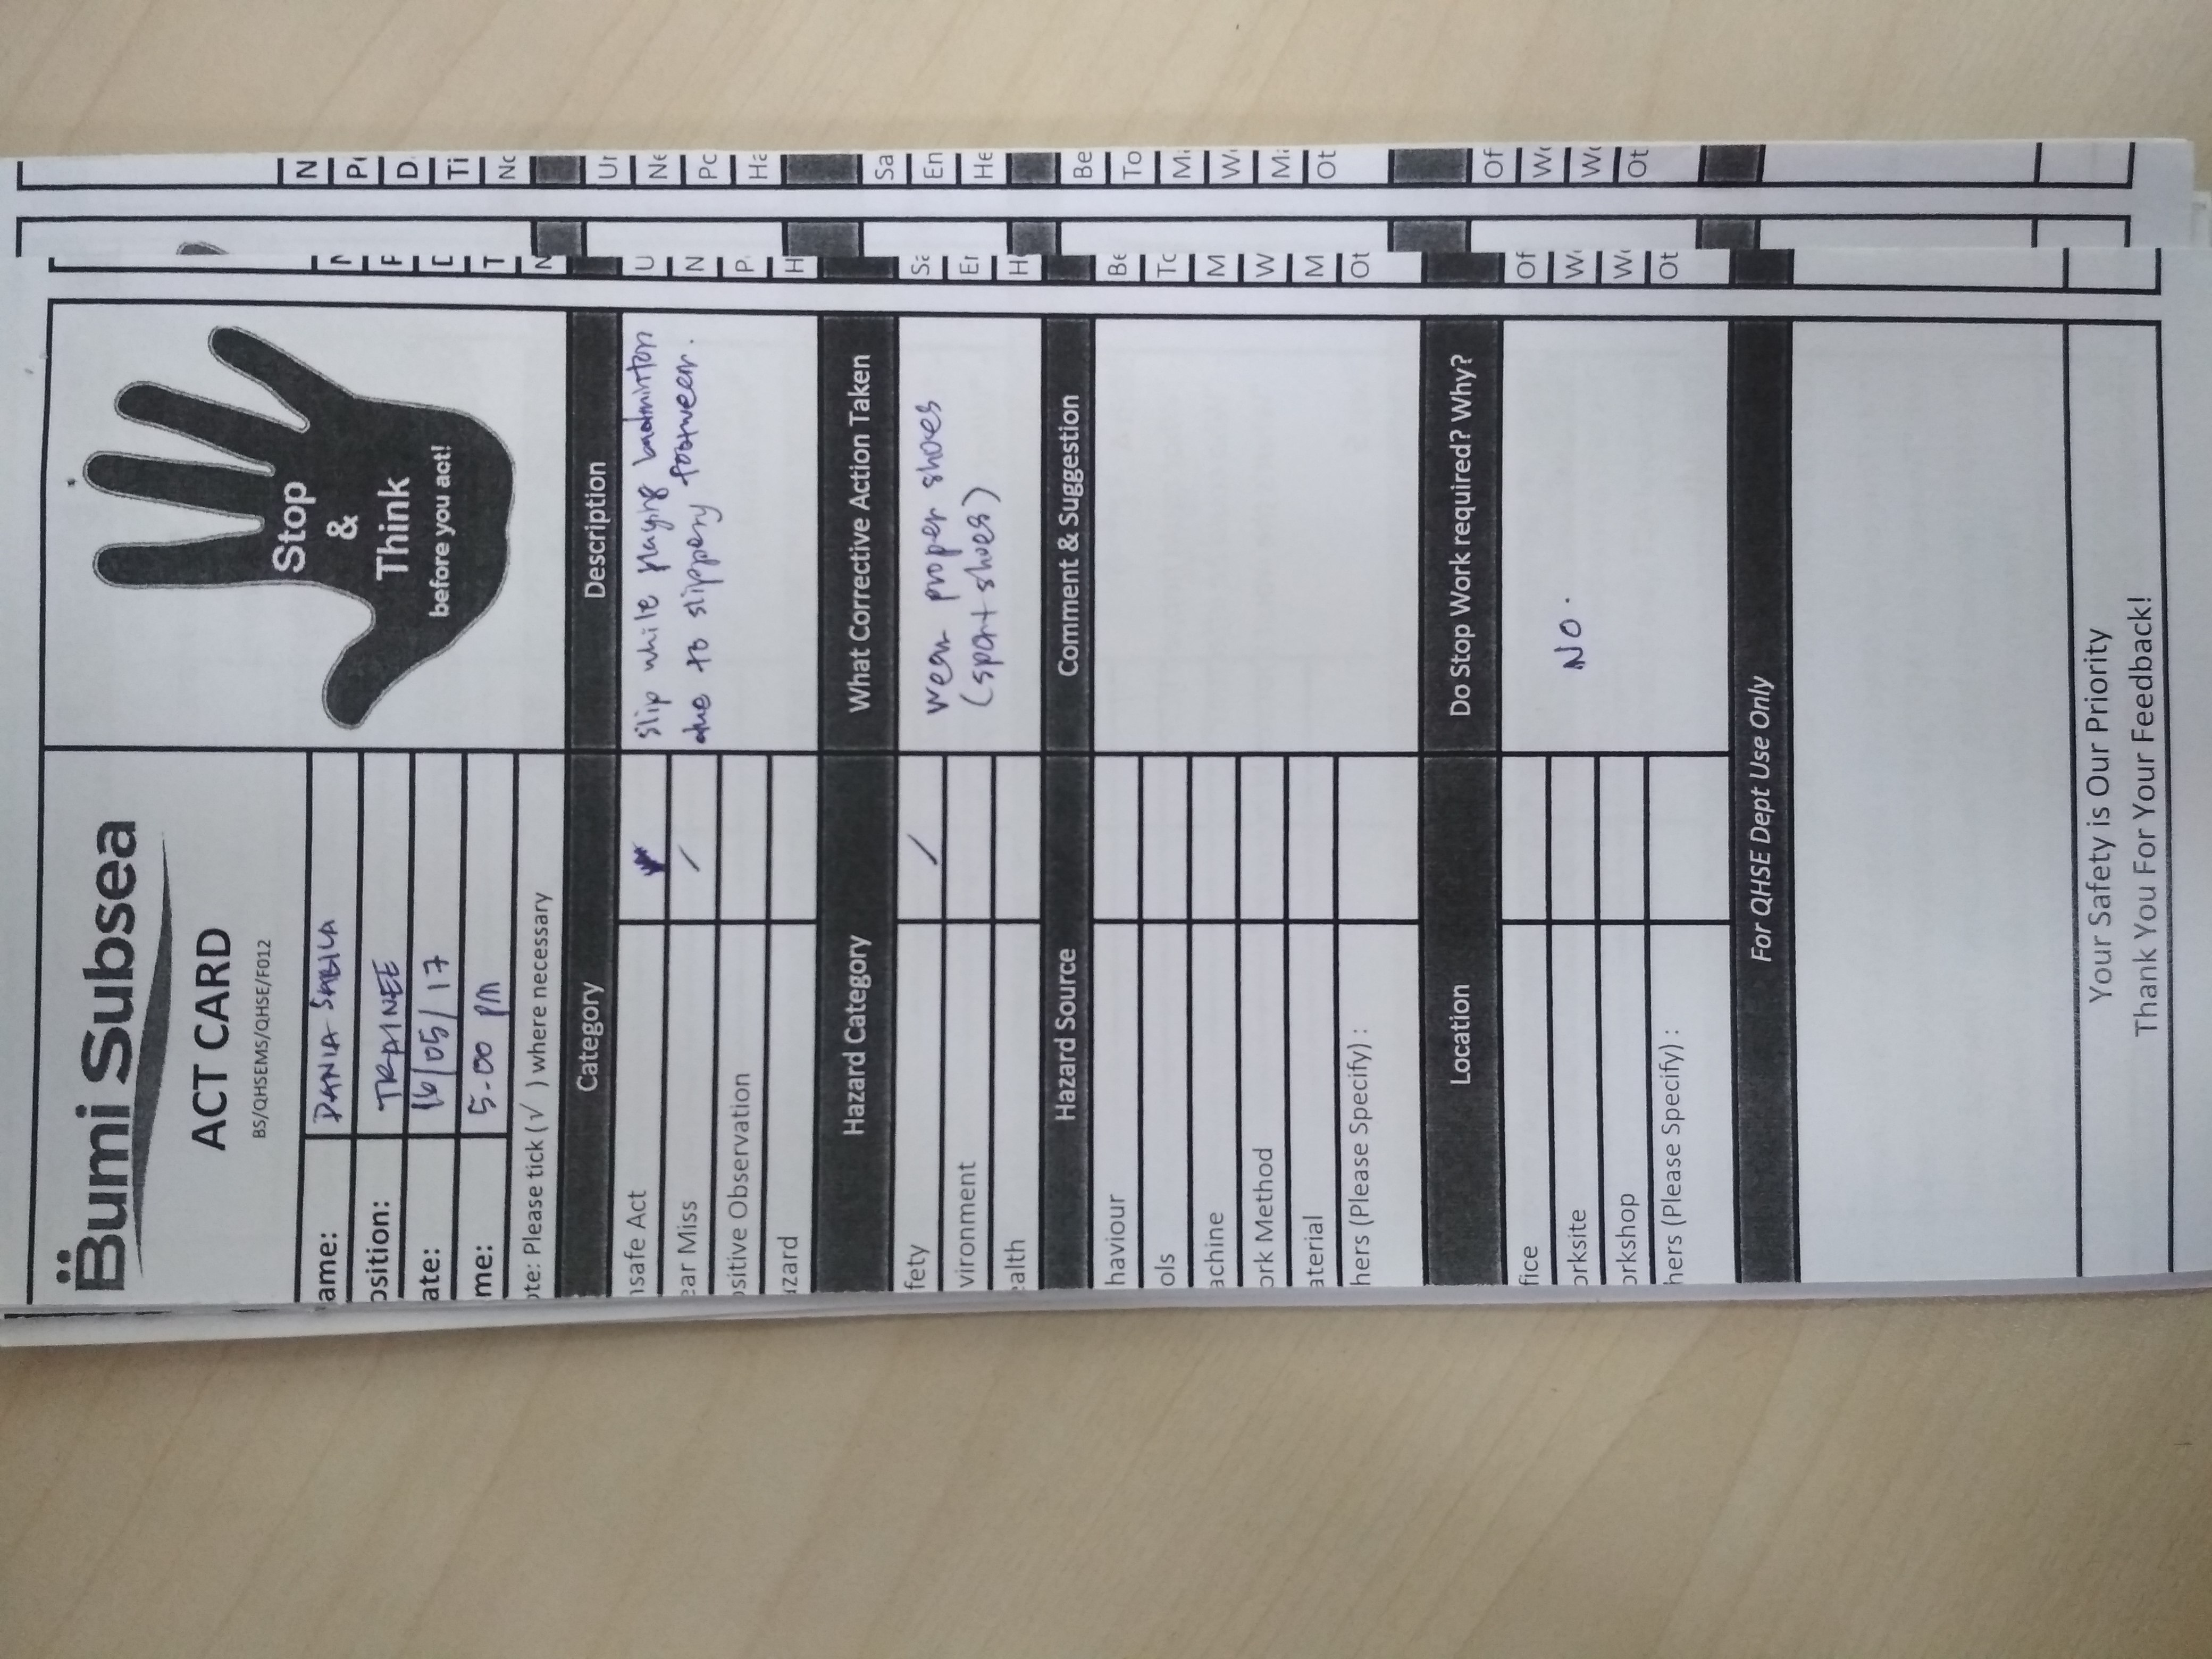 Bumi Subsea
ACT CARD
BS/QHSEMS/QHSE/F012
Stop
&
Think
before you act!
ame: DANIA SABILA
osition: TRAINEE
ate: 16/05/17
me: 5.00 PM
ote: Please tick (√ ) where necessary
Category Description
nsafe Act Slip while playing badminton
ear Miss / due to slippery footwear.
ositive Observation
azard
Hazard Category What Corrective Action Taken
fety / wear proper shoes
vironment (sport shoes)
ealth
Hazard Source Comment & Suggestion
haviour
ols
achine
ork Method
aterial
hers (Please Specify) :
Location Do Stop Work required? Why?
fice
orksite NO.
orkshop
hers (Please Specify) :
For QHSE Dept Use Only
Your Safety is Our Priority
Thank You For Your Feedback!